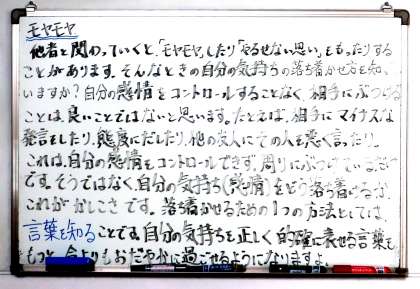 モヤモヤ
他者と関わっていくと、「モヤモヤ」したり「やるせない思い」をもったりする
ことがあります。そんなときの自分の気持ちの落ち着かせ方を知って
いますか?自分の感情をコントロールすることなく、相手にぶつける
ことは、良いことではないと思います。たとえば、相手にマイナスな
発言をしたり、態度にだしたり、他の友人にその人を悪く言ったり。
これは、自分の感情をコントロールできず、周りにぶつけているだけ
です。そうではなく、自分の気持ち(感情)をどう落ち着けるか。
これがかしこさです。落ち着かせるための1つの方法としては、
言葉を知ることです。自分の気持ちを正しく的確に表せる言葉を
もつと、今よりもおだやかに過ごせるようになりますよ。